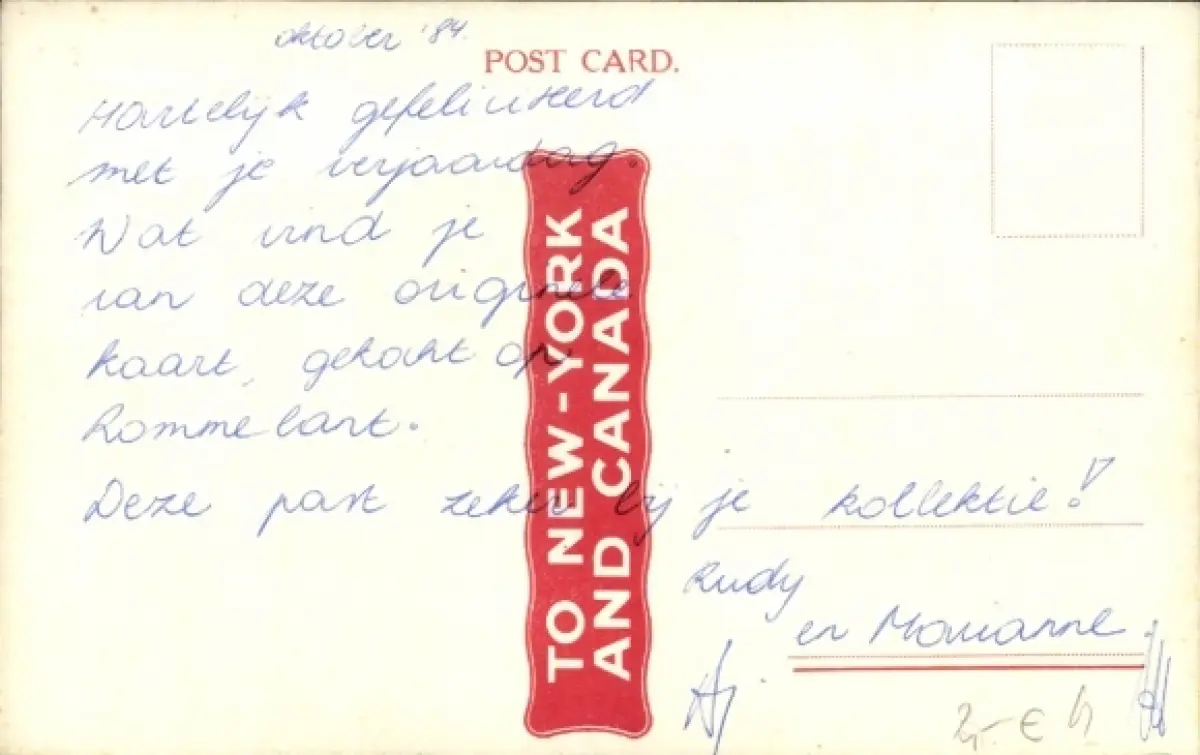 oktober '84.
POST CARD.
Hartelijk gefeliciteerd
met je verjaardag.
Wat vind je
van deze originele
kaart, gekocht op
Rommelart.
Deze past zeker bij je kollektie!
Rudy
en Marianne.
TO NEW-YORK
AND CANADA
2,- €